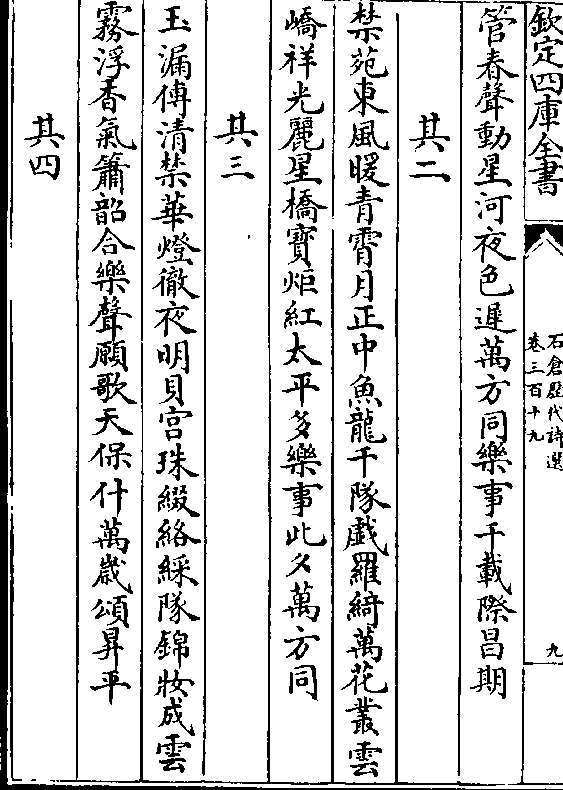 欽定四庫全書
石倉歷代詩選
卷三百十九
九
管春聲動星河夜色遲萬方同樂事千載際昌期
其二
禁苑東風暖青霄月正中魚龍千隊戲羅綺萬花叢雲
嶠祥光麗星橋寶炬紅太平多樂事此夕萬方同
其三
玉漏傳清禁華燈徹夜明貝宮珠綴絡綵隊錦妝成雲
霧浮香氣簫韶合樂聲願歌天保什萬歲頌昇平
其四